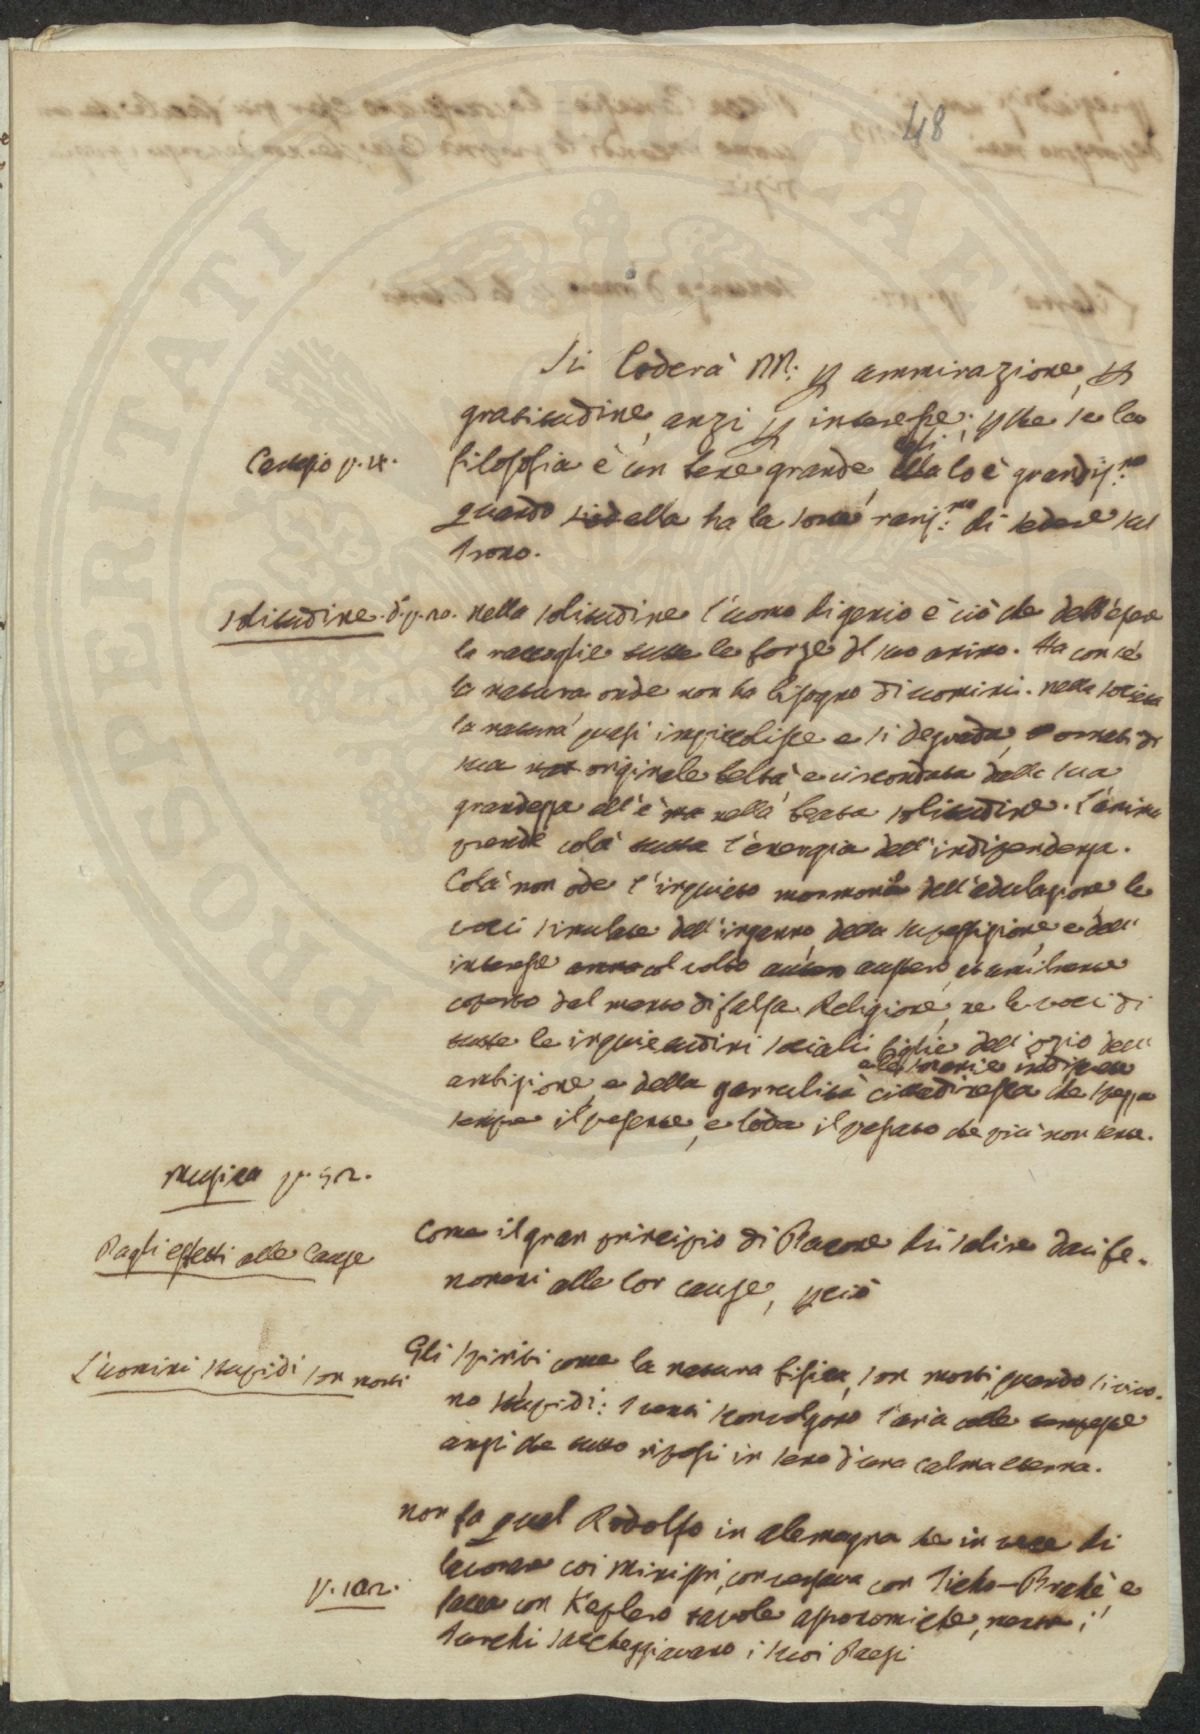 48
Si loderà M. per ammirazione, per
gratitudine, anzi per interesse; perche se la
Cantagio p. 4.
filosofia è un bene grande, egli lo è grandiss.mo
quando siedella ha la sorte rariss.ma di sedere sul
Trono.
solitudine. d. p. 20.
nella solitudine l'uomo di genio è ciò che dell'essere
la raccoglie tutte le forze del suo animo. Ha con sè
la natura onde non ha bisogno di uomini. nella società
la natura quasi impicciolisce e si degrada, ornata di
sua original beltà e circondata dalla sua
grandezza ell'è nella beata solitudine. L'anima
prende colà tutta l'energia dell'indipendenza.
Colà non ode l'inquieto mormorio dell'adulazione, le
voci simulate dell'inganno, della superstizione, e dell'
interesse col volto austero, et umilmente
coperto dal manto di falsa Religione, ne le voci di
tutte le inquietudini sociali figlie dell'ozio dell'
ambizione, e della garrulità cittadinesca che sprezza
sempre il presente, e loda il passato che più non sente.
Musica p. 52.
Dagli effetti alle Cause
Come il gran principio di Bacone di salire dai fe-
nomeni alle lor cause, perciò
L'uomini stupidi son morti
Gli spiriti come la natura fisica, son morti quando si vivo-
no stupidi: I venti sconvolgono l'aria colle tempeste
anzi che tutto riposi in seno d'una calma eterna.
non fa quel Rodolfo in alemagna che in vece di
p. 102.
lavorare coi Ministri, conversava con Ticho-Brahè, e
facea con Keplero tavole astronomiche, mentre i
Turchi saccheggiavano i suoi Paesi
PROSPERITATI PVBLICAE